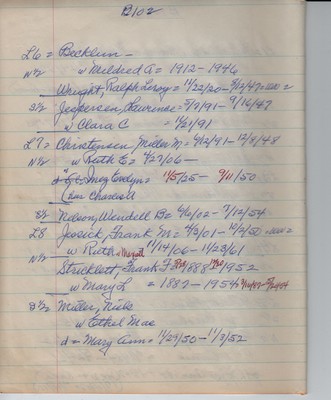 B102
L6 = Becklun —
N½ w Mildred A = 1912 – 1946
Wright, Ralph Leroy = 11/22/20 –
S½ Jespersen, Lawrence = 5/7/91 – 9/16/47
w Clara C = 11/21/91
L7 = Christensen, Miller M = 9/12/91 – 12/8/48
N½ w Ruth E = 4/27/06 —
Inez Evelyn = 11/5/25 – 9/11/50
Charles A
S½ Nelson, Wendell B = 6/6/02 – 7/12/54
L8 Jessick, Frank M = 4/5/01 – 10/2/50
w Ruth Margaret 11/14/06 – 11/23/61
N½ Stricklett, Frank F 1888 1952
w Mary L = 1887 – 1954
S½ Miller, Niels
w Ethel Mae
d = Mary Ann = 11/29/50 – 11/3/52